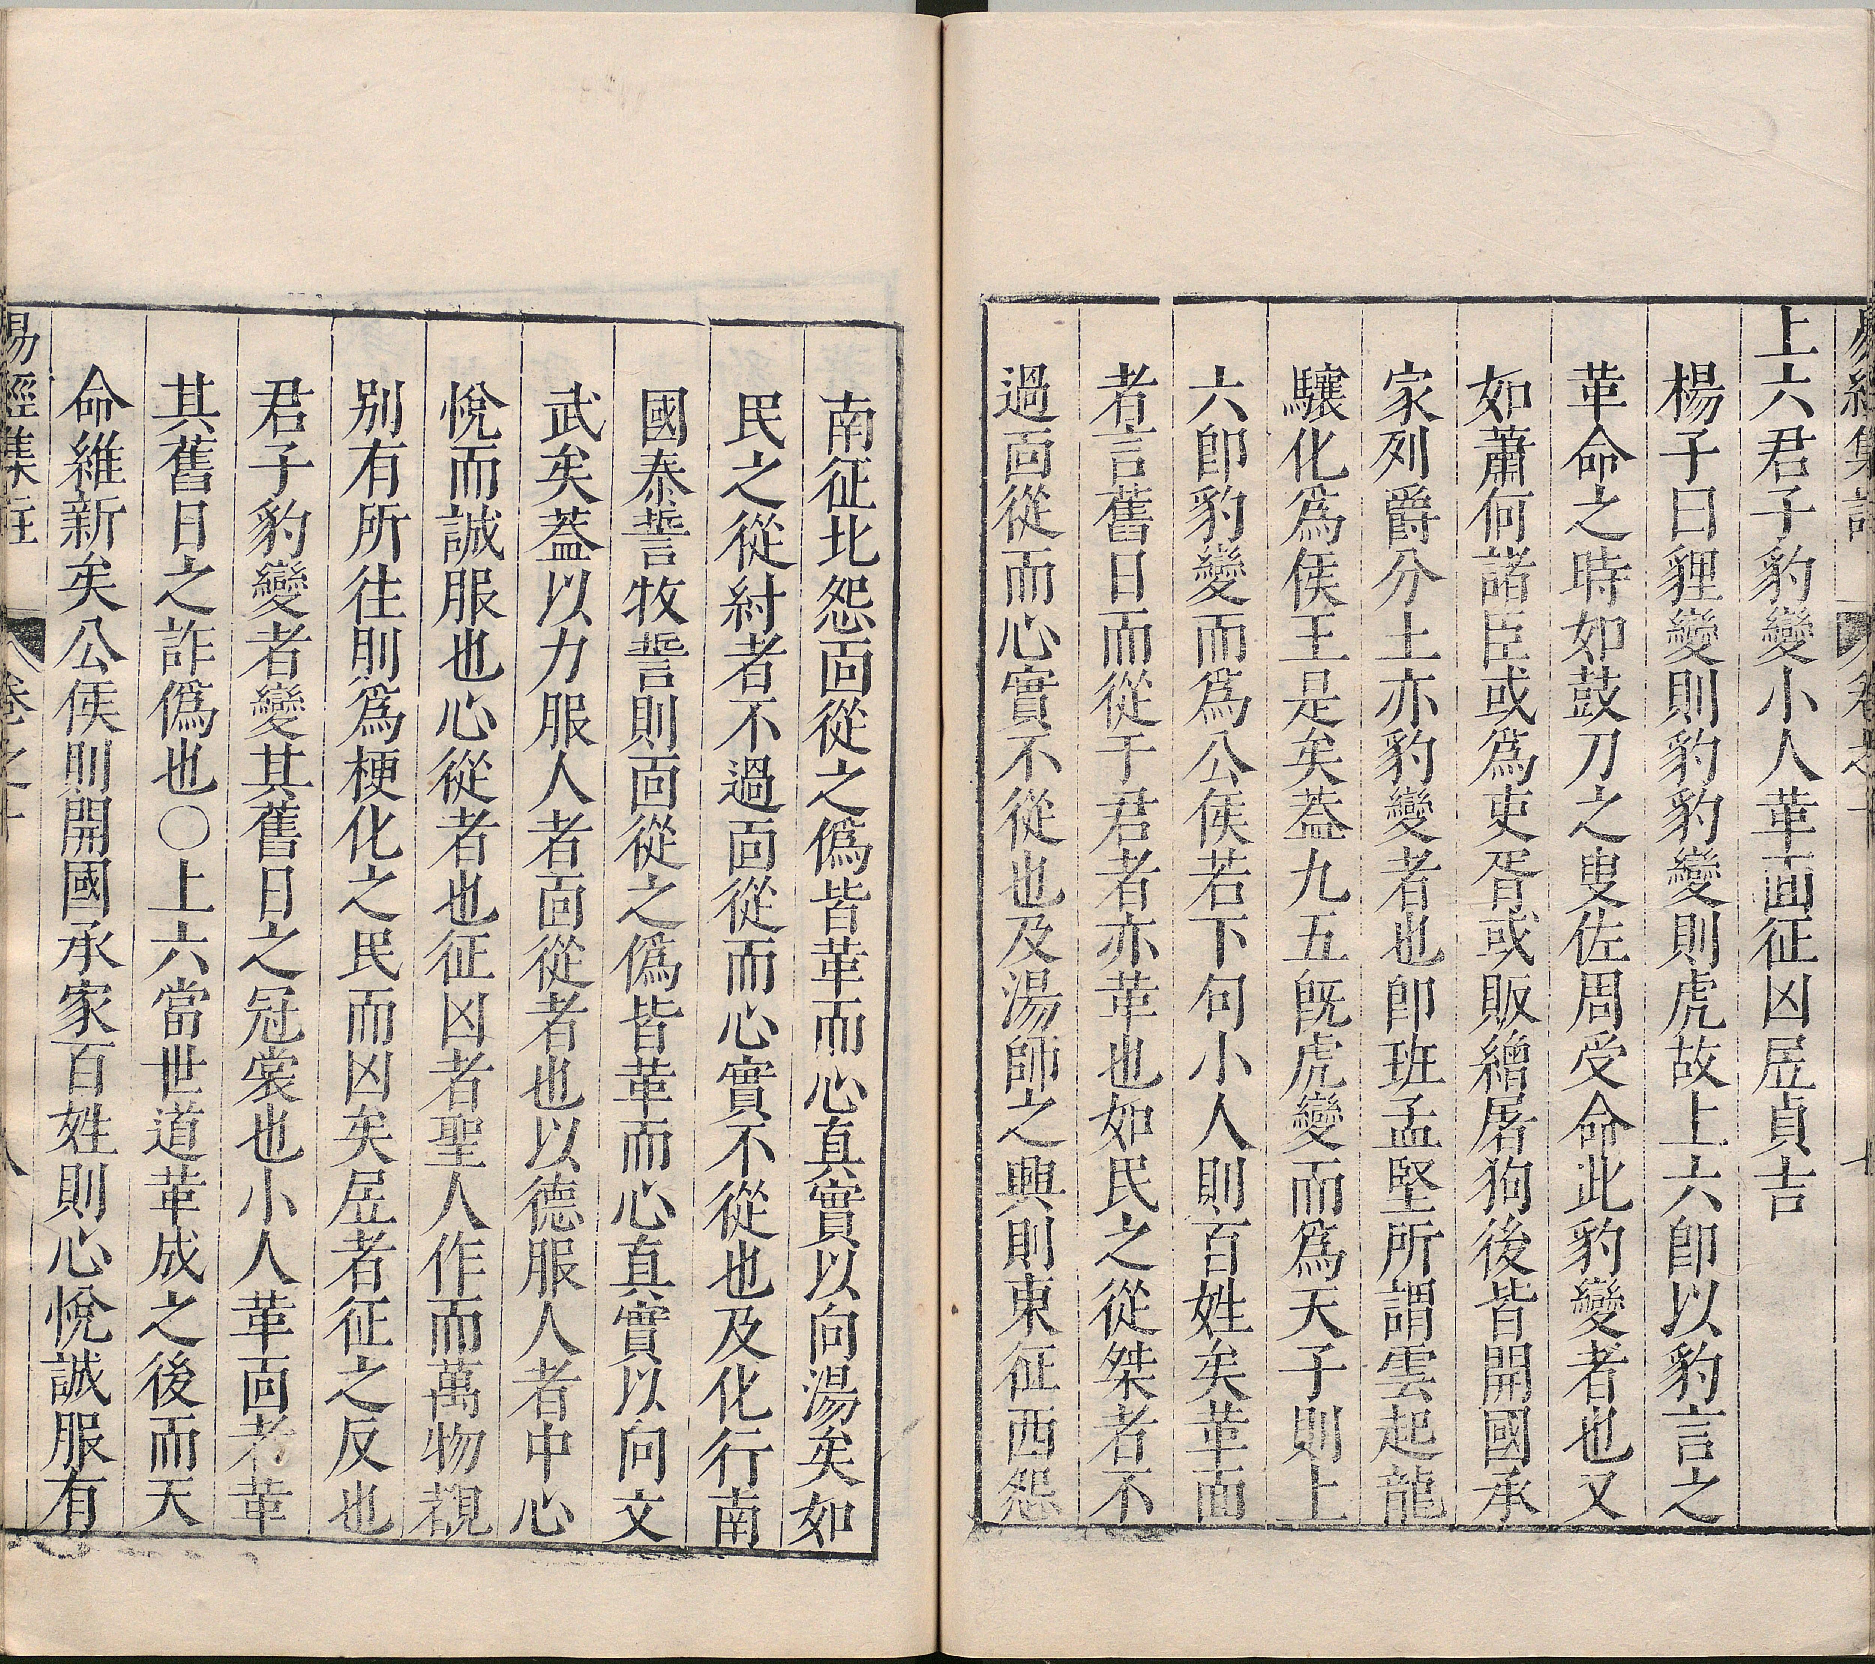 上六君子豹變小人革面征凶居貞吉
楊子曰貍變則豹豹變則虎故上六卽以豹言之
革命之時如鼓刀之叟佐周受命此豹變者也又
如蕭何諸臣或爲吏胥或販繒屠狗後皆開國承
家列爵分土亦豹變者也卽班孟堅所謂雲起龍
驤化爲侯王是矣蓋九五旣虎變而爲天子則上
六卽豹變而爲公侯若下句小人則百姓矣革面
者言舊日而從于君者亦革也如民之從桀者不
過面從而心實不從也及湯師之興則東征西怨
南征北怨面從之僞皆革而心真實以向湯矣如
民之從紂者不過面從而心實不從也及化行南
國泰誓牧誓則面從之僞皆革而心真實以向文
武矣蓋以力服人者面從者也以德服人者中心
悅而誠服也心從者也征凶者聖人作而萬物覩
別有所往則爲梗化之民而凶矣居者征之反也
君子豹變者變其舊日之冠裳也小人革面者革
其舊日之詐僞也○上六當世道革成之後而天
命維新矣公侯則開國承家百姓則心悅誠服有
易經集註 卷之十 八